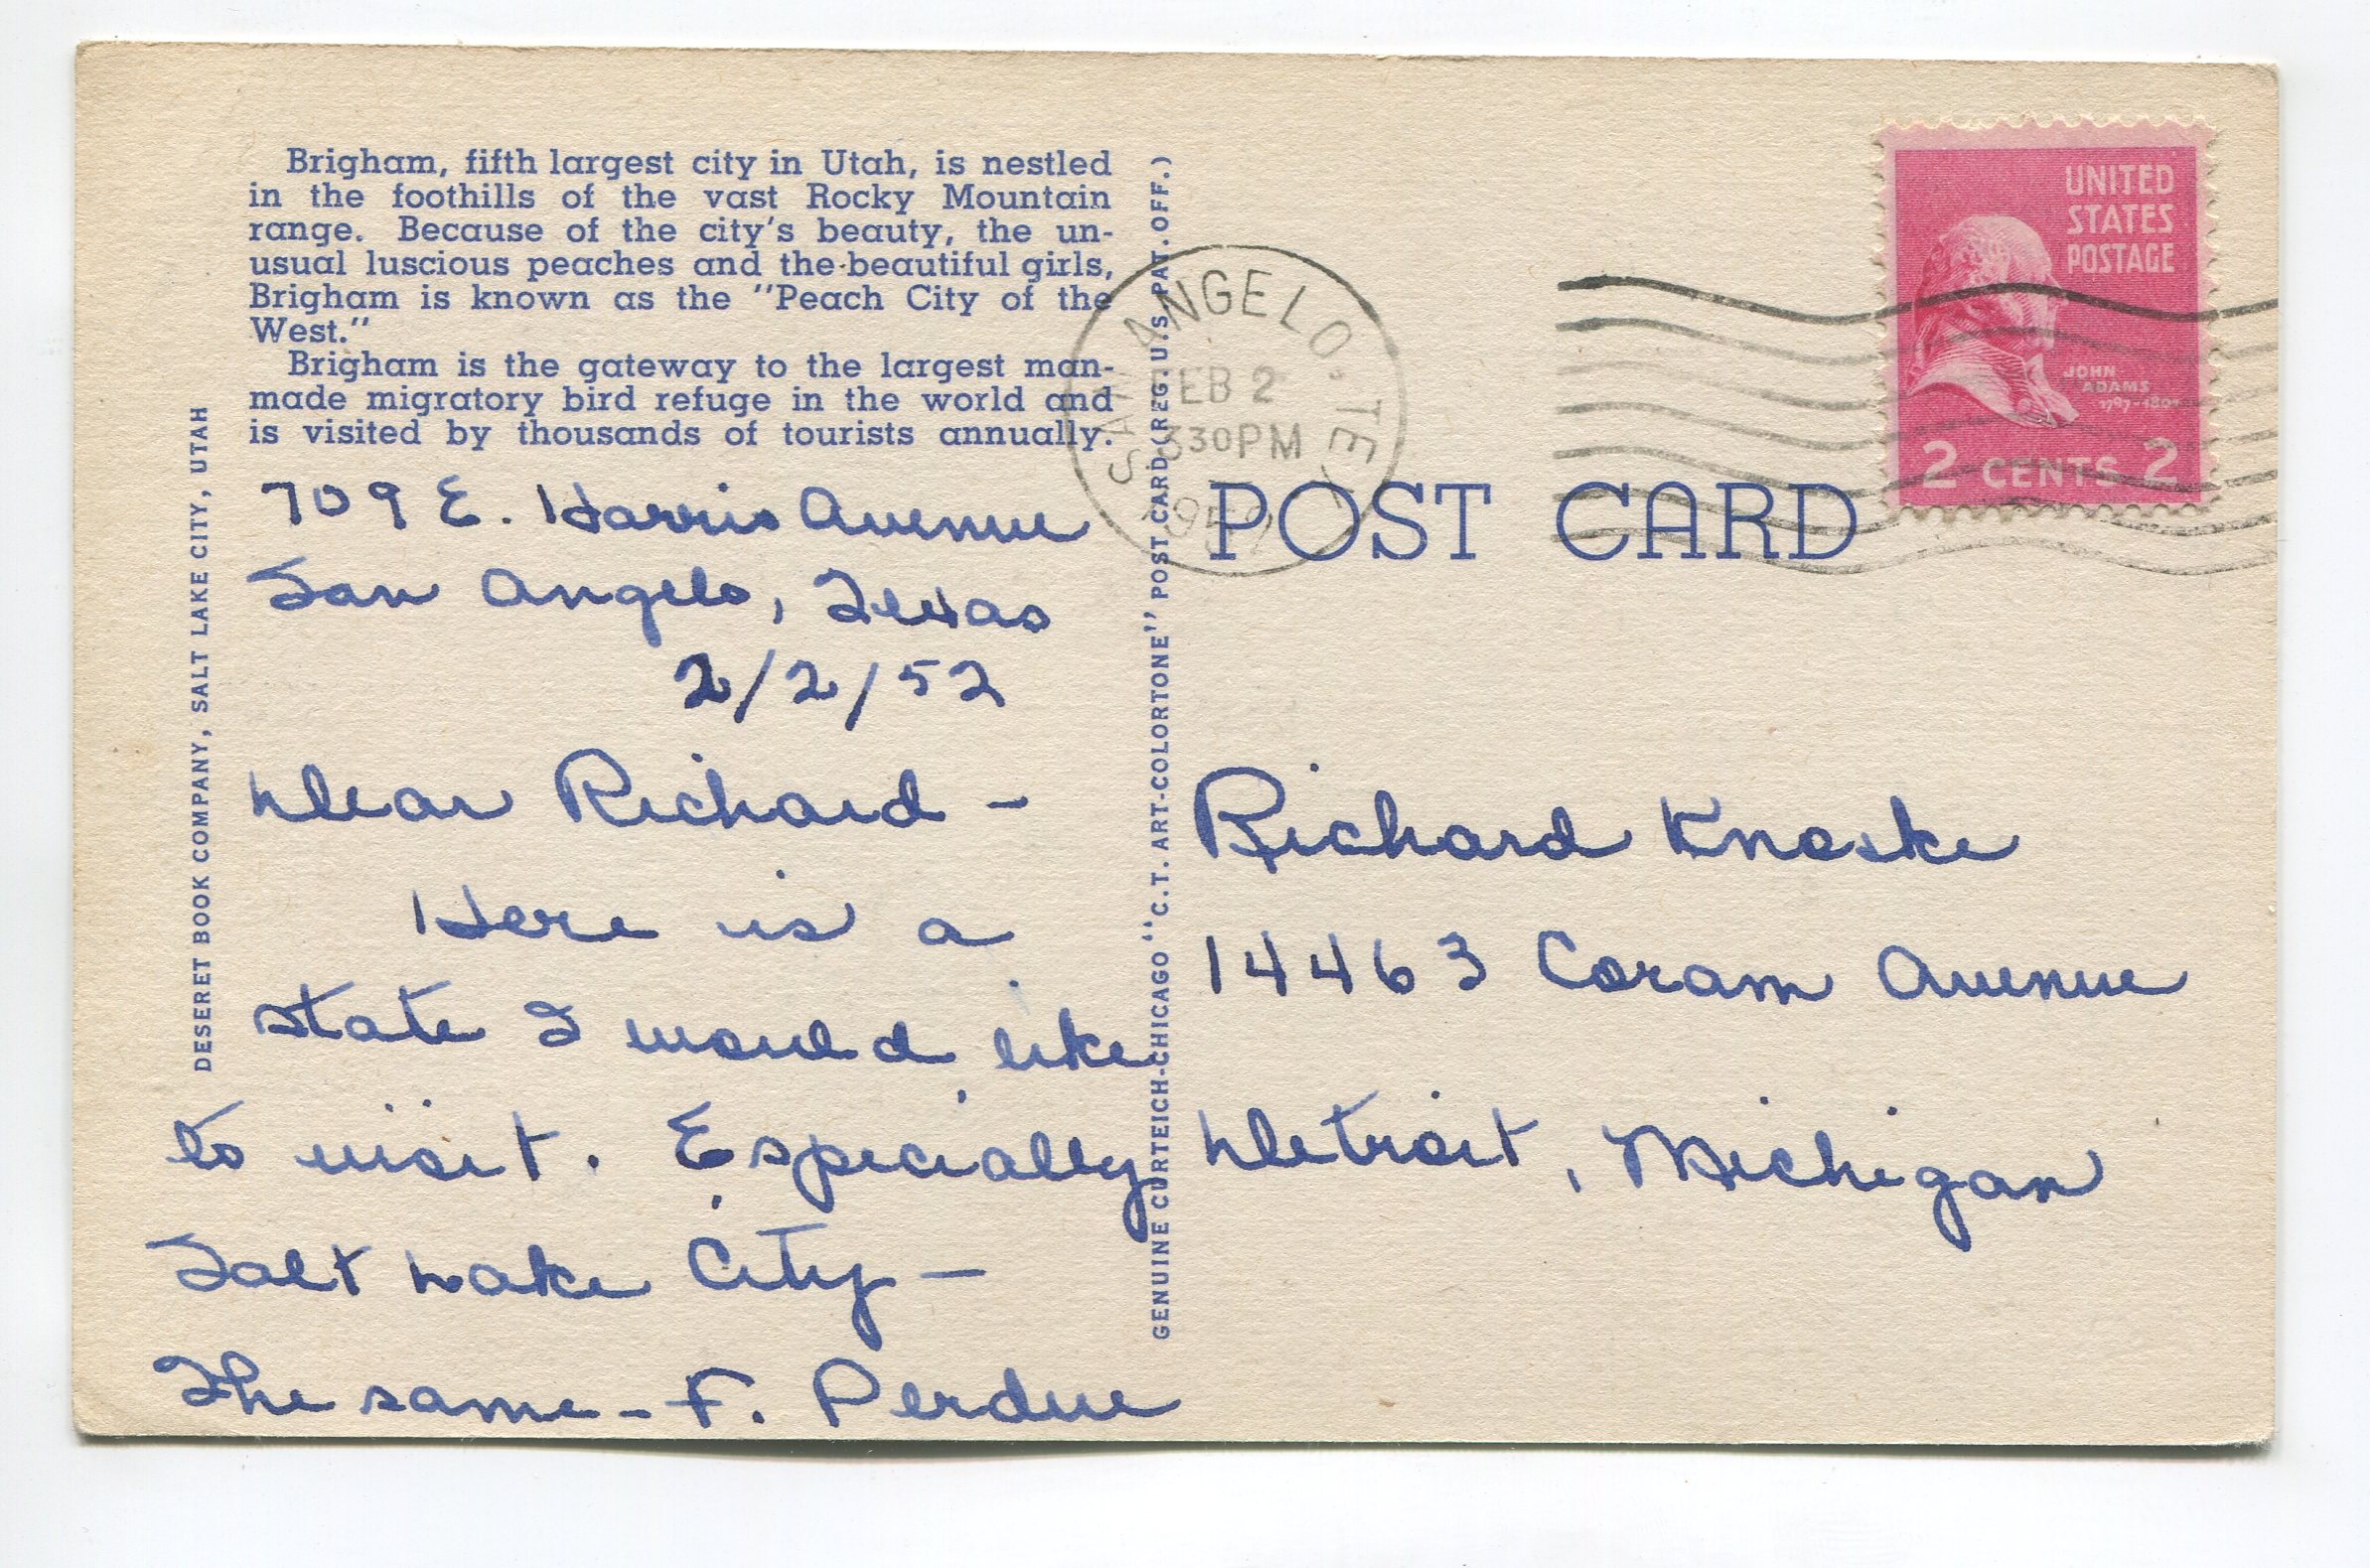 Brigham, fifth largest city in Utah, is nestled
in the foothills of the vast Rocky Mountain
range. Because of the city's beauty, the un-
usual luscious peaches and the beautiful girls,
Brigham is known as the "Peach City of the
West."
Brigham is the gateway to the largest man-
made migratory bird refuge in the world and
is visited by thousands of tourists annually.
DESERET BOOK COMPANY, SALT LAKE CITY, UTAH
709 E. Harris Avenue
San Angelo, Texas
2/2/52
Dear Richard -
Here is a
state I would like
to visit. Especially
Salt Lake City -
The same - F. Perdue
GENUINE CURTEICH-CHICAGO "C.T. ART-COLORTONE" POST CARD (REG. U.S. PAT. OFF.)
SAN ANGELO TEX
FEB 2
330PM
1952
POST CARD
UNITED
STATES
POSTAGE
JOHN
ADAMS
1797-1801
2 CENTS 2
Richard Knoske
14463 Coram Avenue
Detroit, Michigan